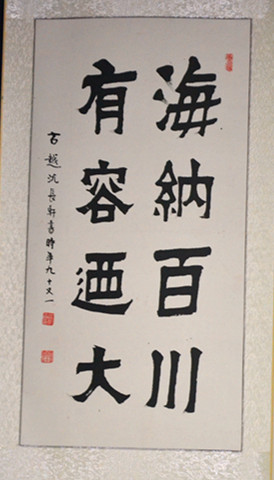 海納百川
有容迺大
古越沉長軒書時年九十又一